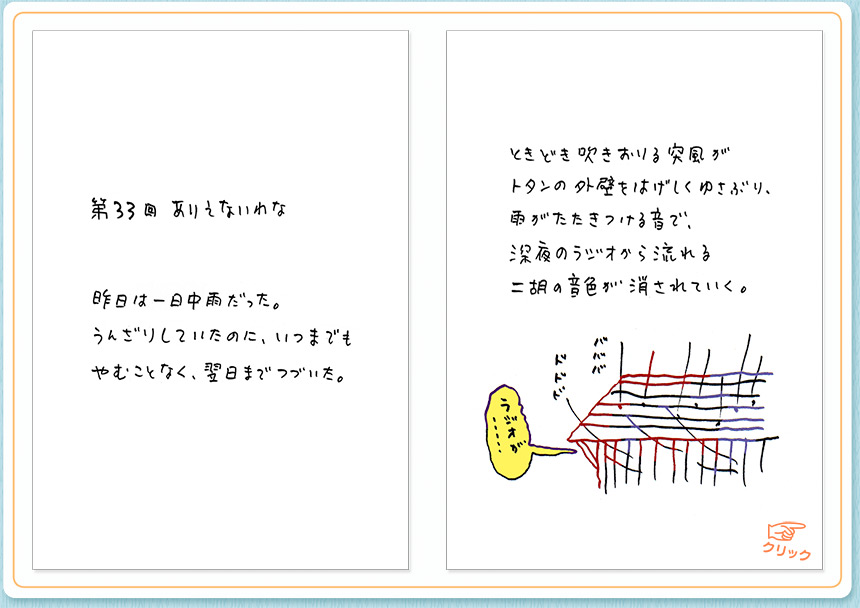 第33回 ありえないわな
昨日は一日中雨だった。
うんざりしていたのに、いつまでも
やむことなく、翌日までつづいた。
ときどき吹きおりる突風が
トタンの外壁をはげしくゆさぶり、
雨がたたきつける音で、
深夜のラジオから流れる
二胡の音色が消されていく。
ババババ
ドドドド
ラジオが……
クリック